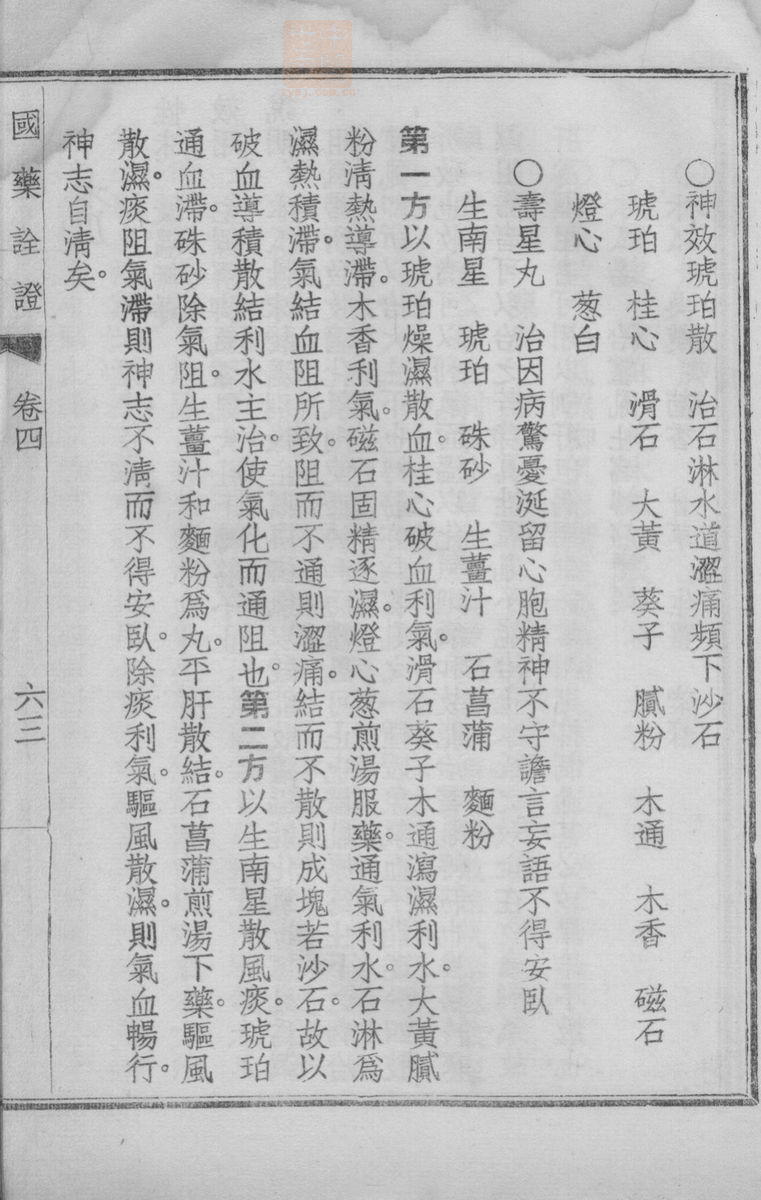 〇神效琥珀散　治石淋水道澀痛頻下沙石
琥珀　桂心　滑石　大黃　葵子　膩粉　木通　木香　磁石
燈心　葱白
〇壽星丸　治因病驚憂涎留心胞精神不守譫言妄語不得安臥
生南星　琥珀　硃砂　生薑汁　石菖蒲　麵粉
第一方以琥珀燥濕散血。桂心破血利氣。滑石葵子木通瀉濕利水。大黃膩
粉清熱導滯。木香利氣。磁石固精逐濕。燈心葱煎湯服藥。通氣利水。石淋爲
濕熱積滯。氣結血阻所致。阻而不通則澀痛。結而不散則成塊若沙石。故以
破血導積散結利水主治。使氣化而通阻也。第二方以生南星散風痰。琥珀
通血滯。硃砂除氣阻。生薑汁和麵粉爲丸。平肝散結。石菖蒲煎湯下藥。驅風
散濕。痰阻氣滯則神志不清而不得安臥。除痰利氣。驅風散濕。則氣血暢行。
神志自清矣。
國藥詮證　卷四　六三